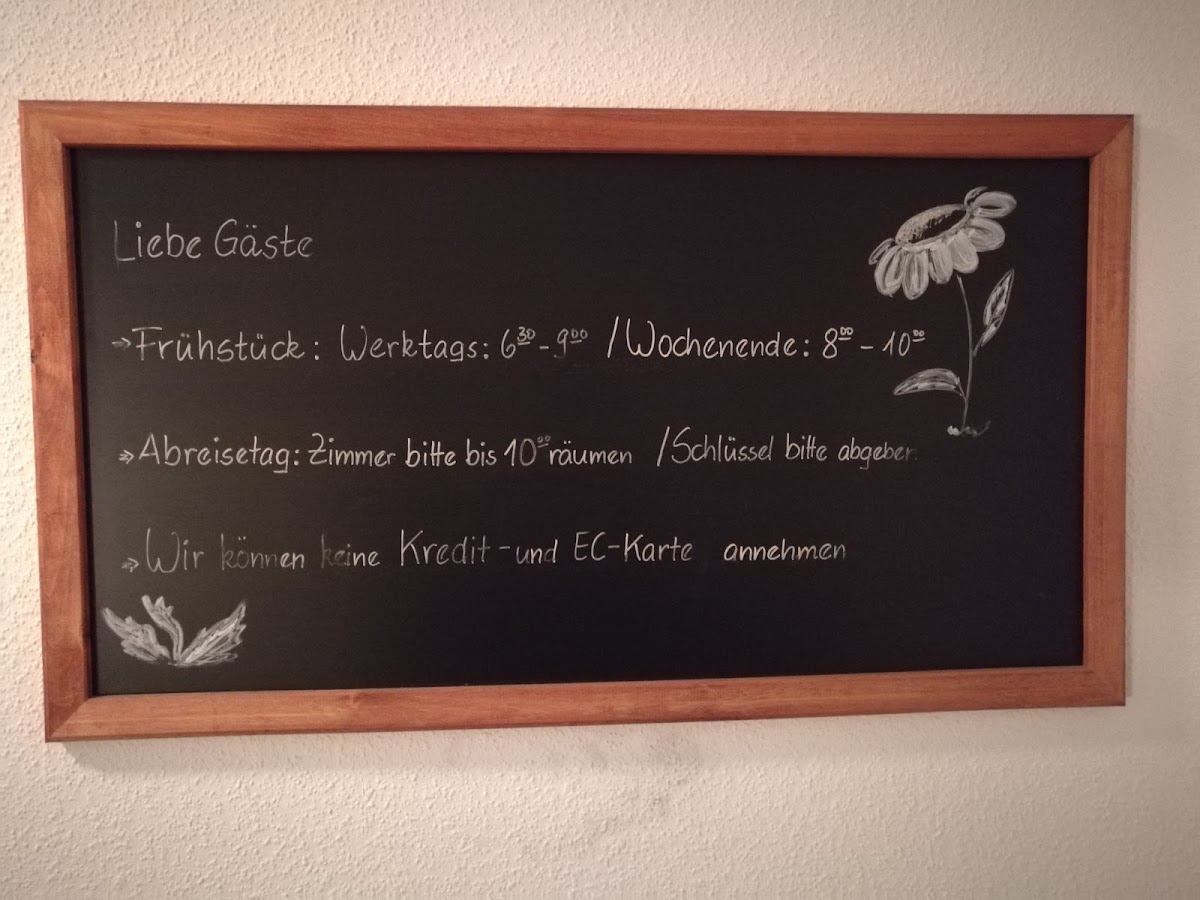 Liebe Gäste
→Frühstück: Werktags: 6³⁰-9⁰⁰ /Wochenende: 8⁰⁰-10⁰⁰
»Abreisetag: Zimmer bitte bis 10⁰⁰ räumen /Schlüssel bitte abgeben
»Wir können keine Kredit-und EC-Karte annehmen